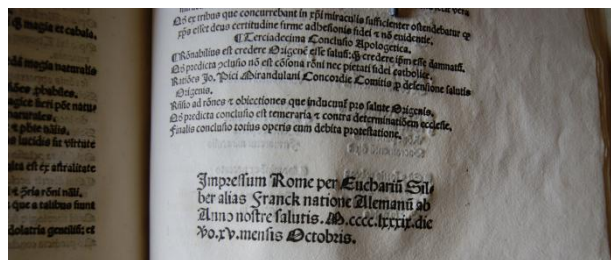 q magia et cabala.
magia naturalis
ꝓbabiles.
naturales.
lucidis in virtute
ita est ex astralitate
que a talibus fiunt
idolatria gentiliũ: et
Qd̓ ex tribus que concurrebant in xp̃i miraculis sufficienter ostendebatur ꝙ
xp̃s esset deus certitudine firme adhesionis fidei ⁊ nõ euidentie.
¶ Terciadecima Conclusio Apologetica.
¶ Rõnabilius est credere Origenẽ esse saluũ: ꝙ̃ credere ip̃m esse damnatũ.
Qd̓ predicta ɔclusio nõ est cõsona rõni nec pietati fidei catholice.
Rõnes Jo. Pici Mirandulani Concordie Comitis ꝓ defensione salutis
Origenis.
Rñsio ad rõnes ⁊ obiectiones que inducunt̃ pro salute Origenis.
Qd̓ predicta conclusio est temeraria ⁊ contra determinatiõem ecclesie.
Finalis conclusio totius operis cum debita protestatione.
Impressum Rome per Euchariũ Sil⸗
ber alias Franck natione Alemanũ ab
Anno nostre salutis. M.cccc.lxxxix. die
vo.xv. mensis Octobris.